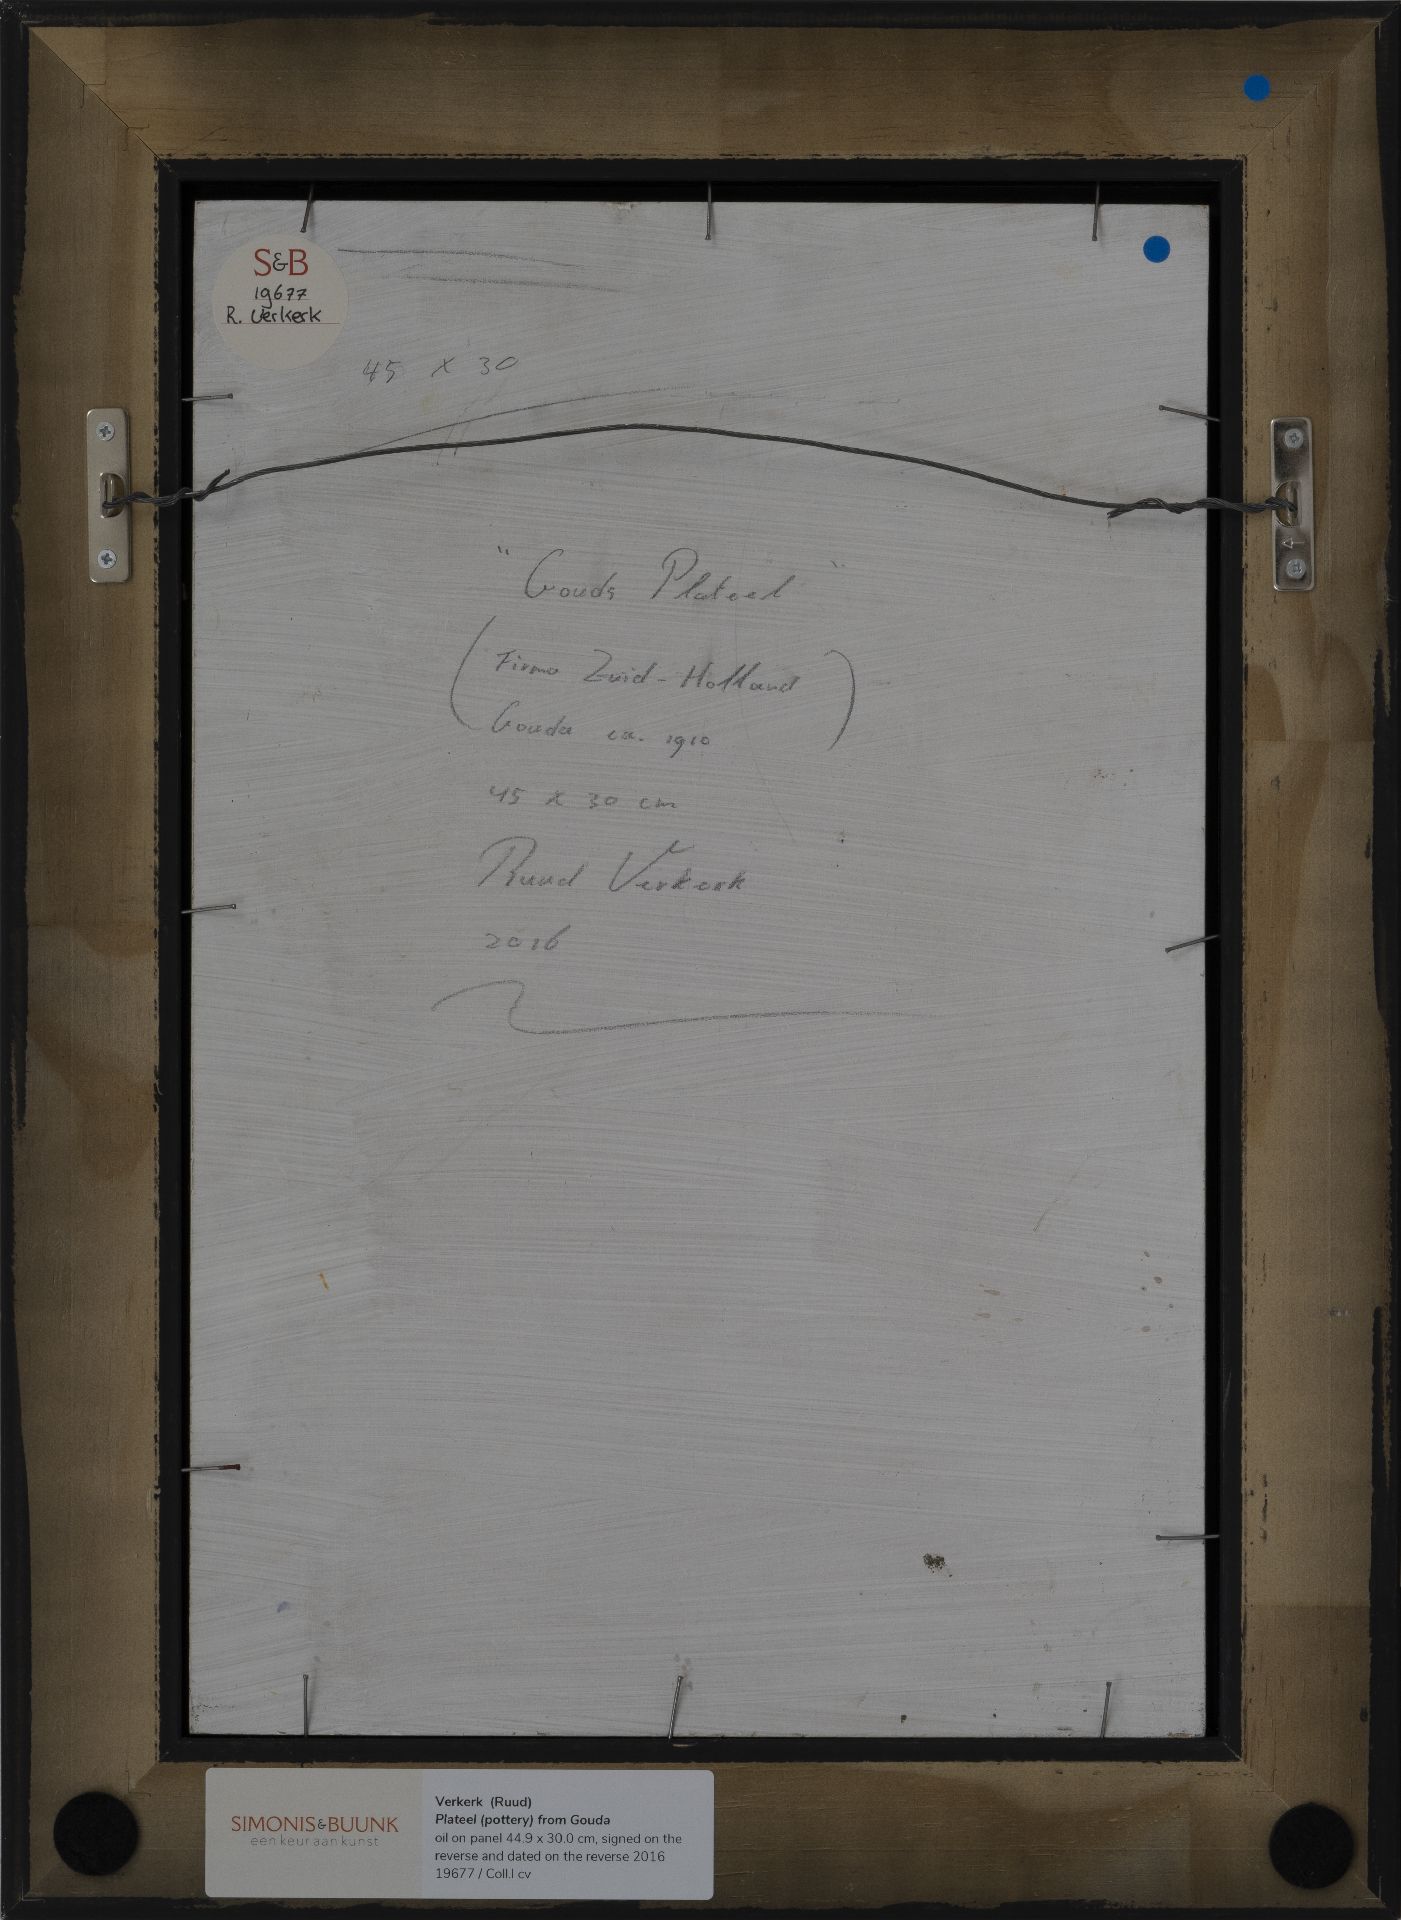 S&B
19677
R. Verkerk
45 x 30
"Gouds Plateel"
(Firma Zuid-Holland
Gouda ca. 1910)
45 x 30 cm
Ruud Verkerk
2016
SIMONIS&BUUNK
een keur aan kunst
Verkerk (Ruud)
Plateel (pottery) from Gouda
oil on panel 44.9 x 30.0 cm, signed on the
reverse and dated on the reverse 2016
19677 / Coll.I cv